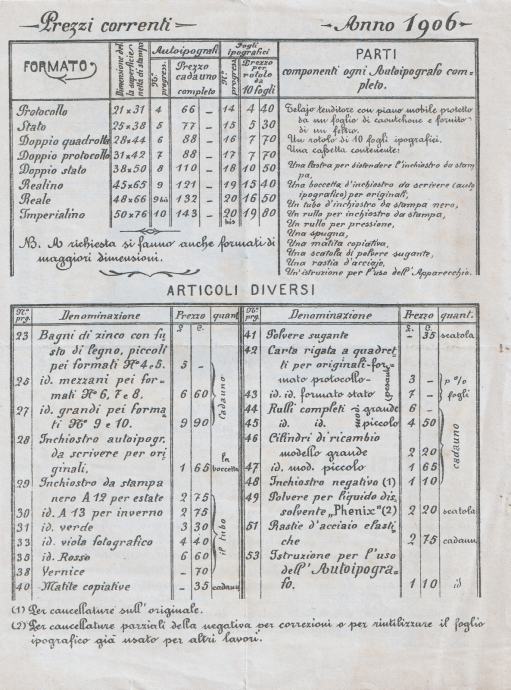 Prezzi correnti — Anno 1906
FORMATO
Dimensione della superficie netta di stampa
Autoipografi
N° progress.
Prezzo cadauno completo
Fogli ipografici
N° progress.
Prezzo per rotolo da 10 fogli
PARTI
componenti ogni Autoipografo completo.
Protocollo 21×31 4 66 – 14 4 40
Stato 25×38 5 77 – 15 5 30
Doppio quadrotta 28×44 6 88 – 16 7 70
Doppio protocollo 31×42 7 88 – 17 7 70
Doppio stato 38×50 8 110 – 18 10 50
Realino 45×65 9 121 – 19 15 40
Reale 48×66 9 bis 132 – 20 16 50
Imperialino 50×76 10 143 – 20 bis 19 80
NB. A richiesta si fanno anche formati di
maggiori dimensioni.
Telajo tenditore con piano mobile protetto
da un foglio di caoutchouc e fornito
di un feltro.
Un rotolo di 10 fogli ipografici.
Una cassetta contenente:
Una lastra per distendere l'inchiostro da stam
pa,
Una boccetta d'inchiostro da scrivere (auto
ipografico) per originali,
Un tubo d'inchiostro da stampa nero,
Un rullo per inchiostro da stampa,
Un rullo per pressione,
Una spugna,
Una matita copiativa,
Una scatola di polvere sugante,
Una rastia d'acciajo,
Un'istruzione per l'uso dell'Apparecchio.
ARTICOLI DIVERSI
N° prg. Denominazione Prezzo £. c. quant.
23 Bagni di zinco con fu
sto di legno, piccoli
pei formati N° 4 e 5. 5 –
25 id. mezzani pei for-
mati N° 6, 7 e 8. 6 60
27 id. grandi pei forma
ti N° 9 e 10. 9 90
cadauno
28 Inchiostro autoipogr.
da scrivere per ori
ginali. 1 65 la boccetta
29 Inchiostro da stampa
nero A 12 per estate 2 75
30 id. A 13 per inverno 2 75
31 id. verde 3 30
33 id. viola fotografico 4 40
35 id. Rosso 6 60
38 Vernice – 70
il tubo
40 Matite copiative – 35 cadauna
N° prg. Denominazione Prezzo £. c. quant.
41 Polvere sugante – 35 scatola
42 Carta rigata a quadret
ti per originali-for-
mato protocollo- 3 –
43 id. id. formato stato 7 –
(pesante)
p % fogli
44 Rulli completi mod. grande 6 –
45 id. id. piccolo 4 50
46 Cilindri di ricambio
modello grande 2 20
47 id. mod. piccolo 1 65
48 Inchiostro negativo (1) 1 10
cadauno
49 Polvere per liquido dis
solvente „Phenix" (2) 2 20 scatola
51 Rastie d'acciaio elasti
che 2 75 cadauna
53 Istruzione per l'uso
dell'Autoipogra-
fo. 1 10 id
(1) Per cancellature sull'originale.
(2) Per cancellature parziali della negativa per correzioni o per riutilizzare il foglio
ipografico già usato per altri lavori.